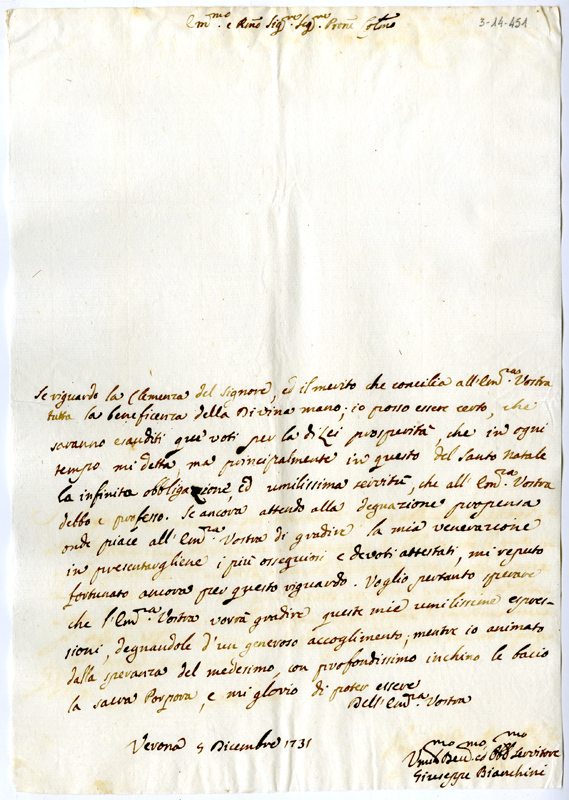 Em.mo e Rmo Sig.re Sig.re Prone Colmo
3-14-451
Se riguardo la Clemenza del Signore, ed il merito che concilia all'Em.za Vostra
tutta la beneficenza della Divina mano; io posso essere certo, che
saranno esauditi que' voti per la di Lei prosperità, che in ogni
tempo mi detta, ma principalmente in questo del santo natale
la infinita obbligazione, ed umilissima servitù, che all'Em.za Vostra
debbo e professo. Se ancora attendo alla degnazione propensa
onde piace all'Em.za Vostra di gradire la mia venerazione
in presentargliene i più ossequiosi e devoti attestati, mi reputo
fortunato ancora per questo riguardo. Voglio pertanto sperare
che l'Em.za Vostra vorrà gradire queste mie umilissime espres-
sioni, degnandole d'un generoso accoglimento; mentre io animato
dalla speranza del medesimo, con profondissimo inchino le bacio
la sacra Porpora, e mi glorio di poter essere
Dell'Em.za Vostra
Verona 5 Dicembre 1731
Um.mo Dev.mo ed Obb.mo Servitore
Giuseppe Bianchini